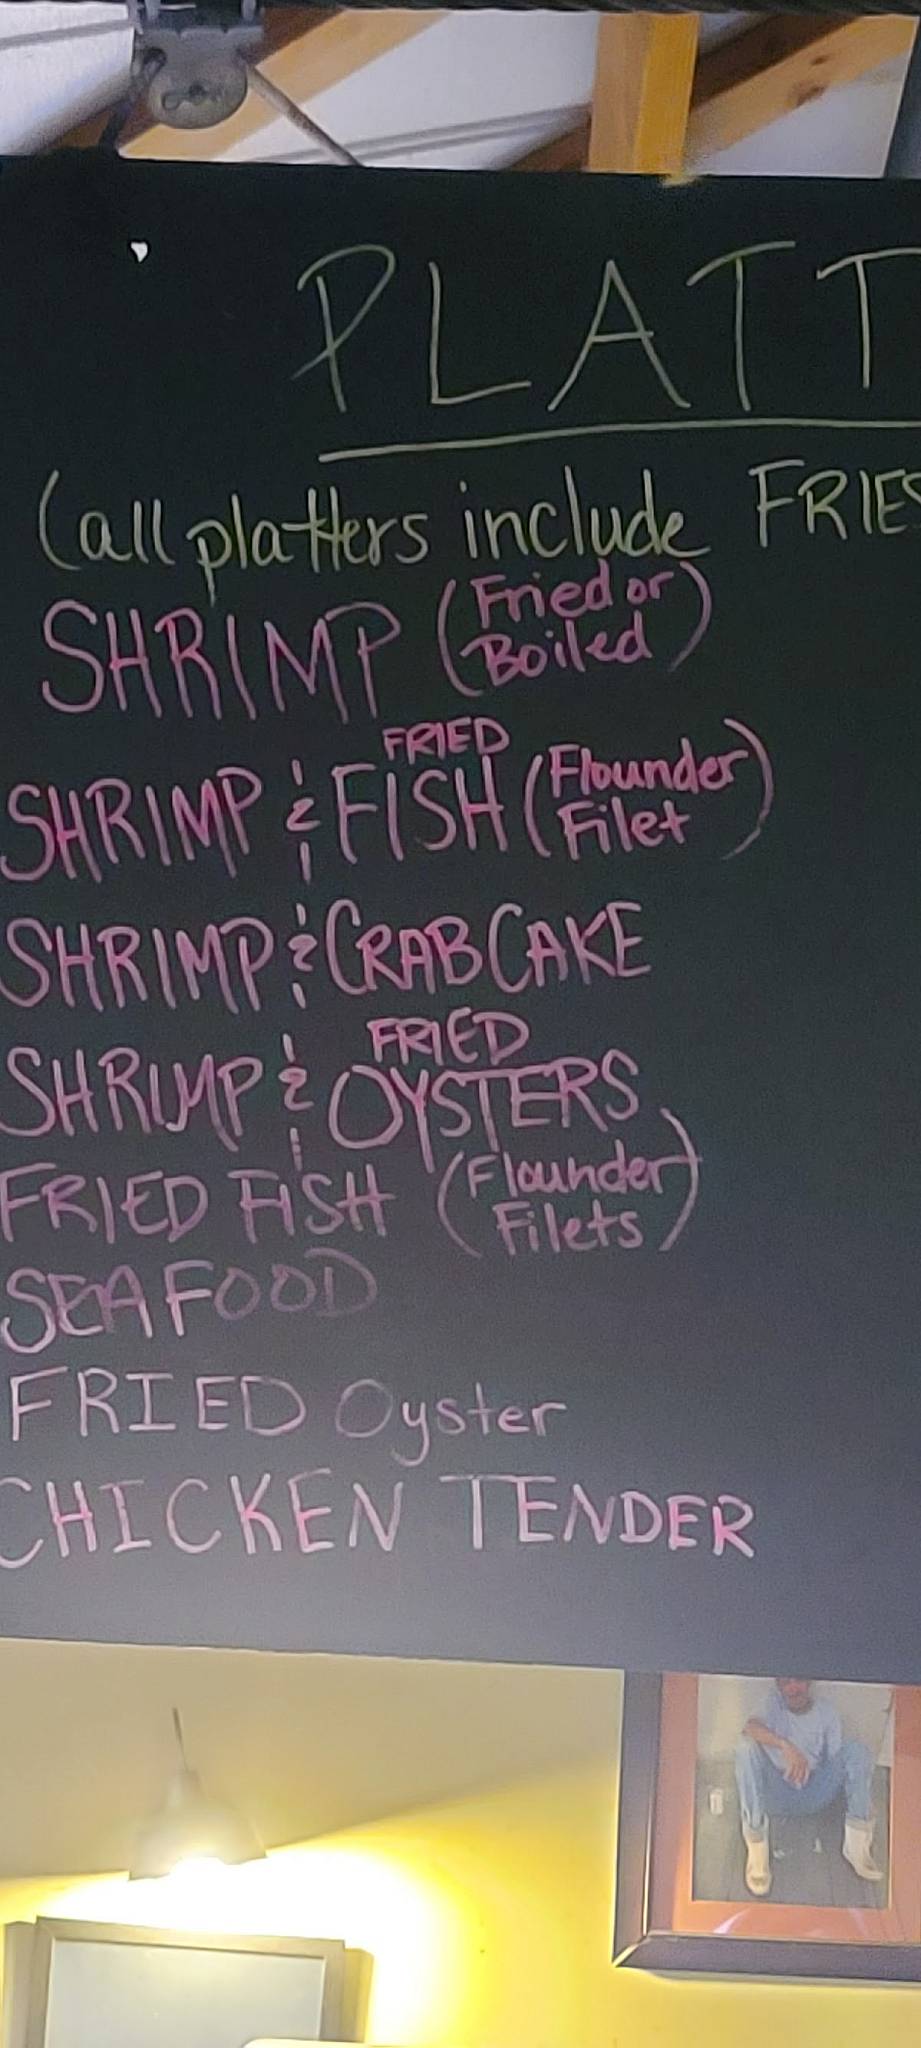 PLATT
(all platters include FRIES
SHRIMP (Fried or Boiled)
SHRIMP & FRIED FISH (Flounder Filet)
SHRIMP & CRAB CAKE
SHRIMP & FRIED OYSTERS
FRIED FISH (Flounder Filets)
SEAFOOD
FRIED Oyster
CHICKEN TENDER